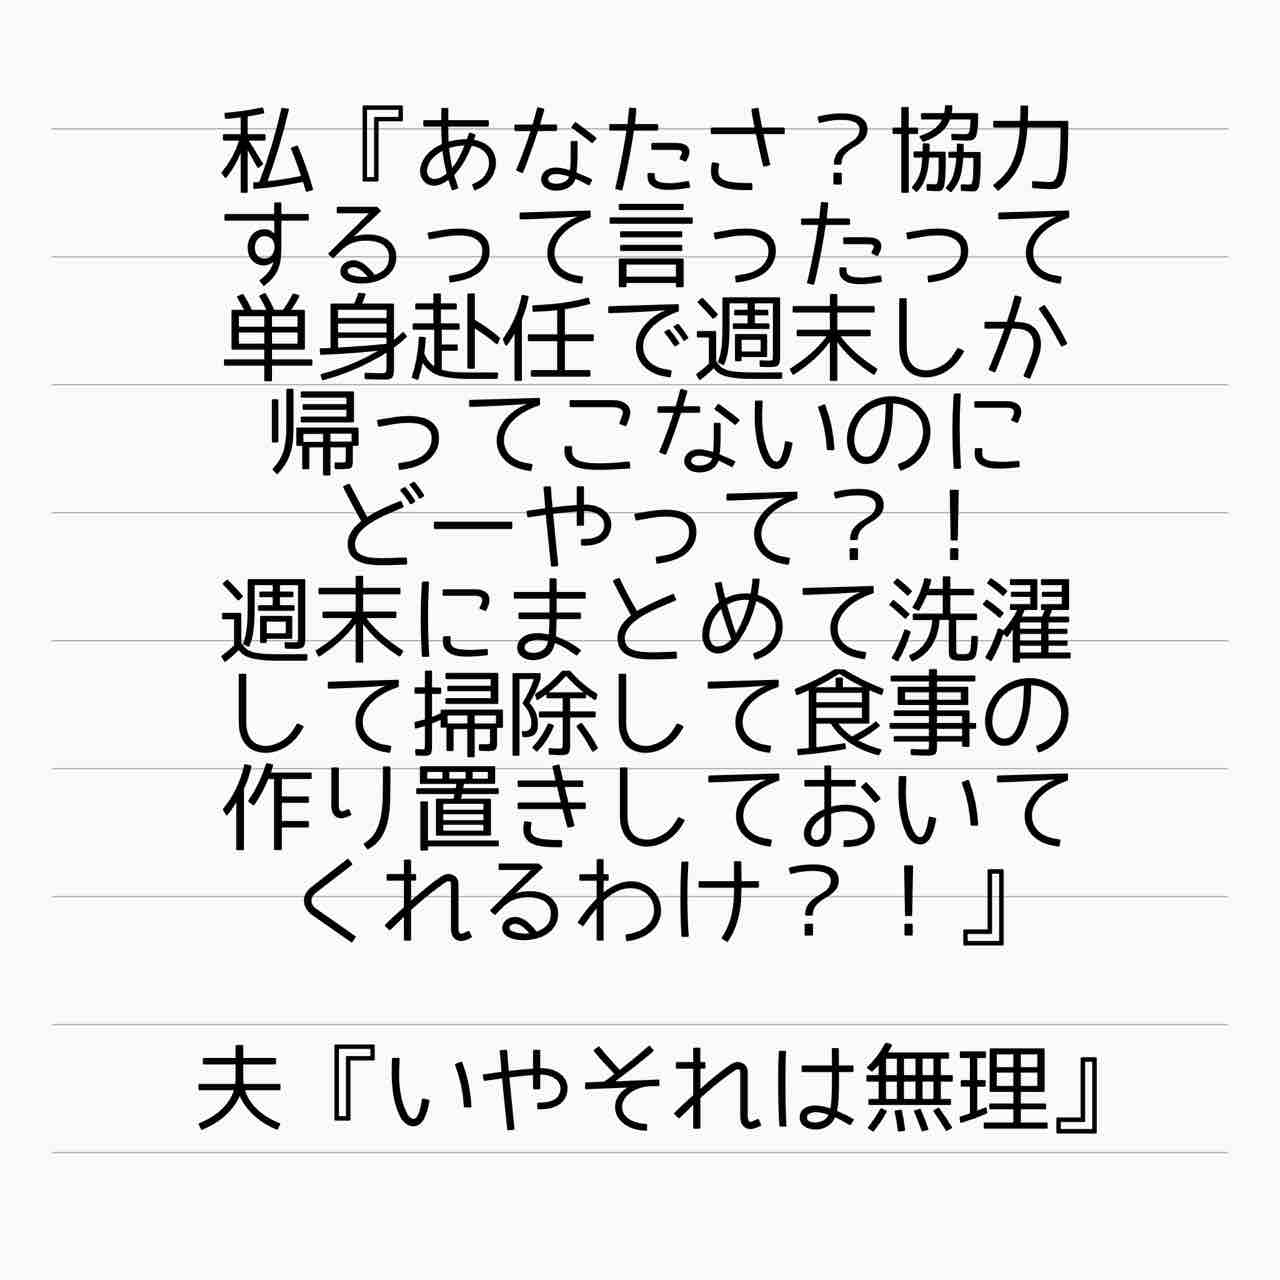 私『あなたさ？協力
するって言ったって
単身赴任で週末しか
帰ってこないのに
どーやって？！
週末にまとめて洗濯
して掃除して食事の
作り置きしておいて
くれるわけ？！』
夫『いやそれは無理』